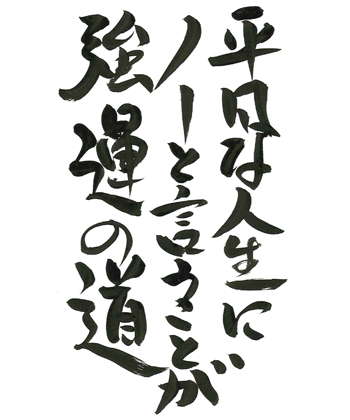 平凡な人生に
ノーと言うことが
強運の道